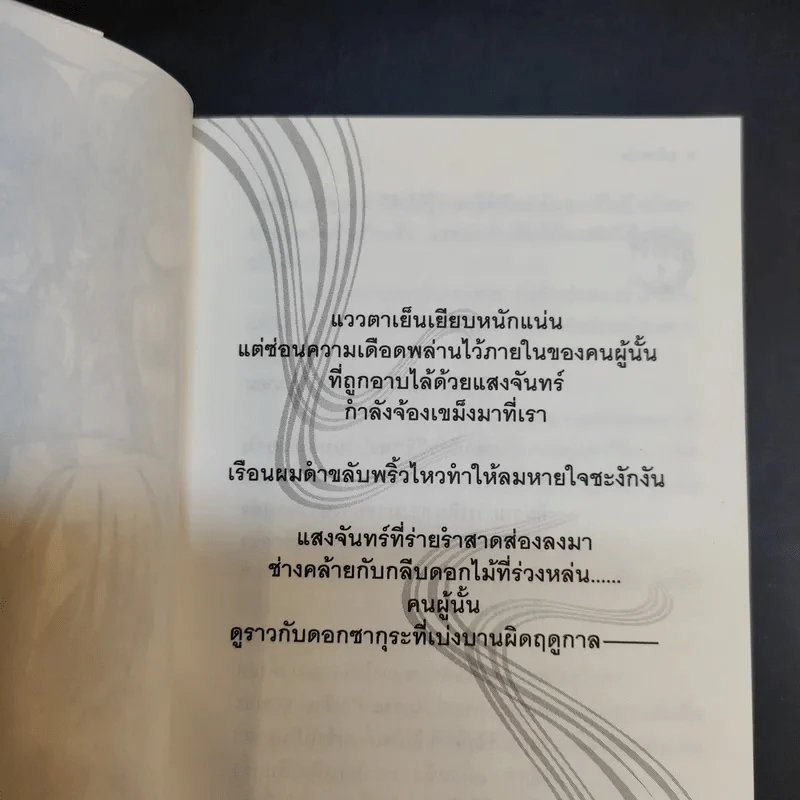 แววตาเย็นเยียบหนักแน่น
แต่ซ่อนความเดือดพล่านไว้ภายในของคนผู้นั้น
ที่ถูกอาบไล้ด้วยแสงจันทร์
กำลังจ้องเขม็งมาที่เรา
เรือนผมดำขลับพริ้วไหวทำให้ลมหายใจชะงักงัน
แสงจันทร์ที่ร่ายรำสาดส่องลงมา
ช่างคล้ายกับกลีบดอกไม้ที่ร่วงหล่น......
คนผู้นั้น
ดูราวกับดอกซากุระที่เบ่งบานผิดฤดูกาล——